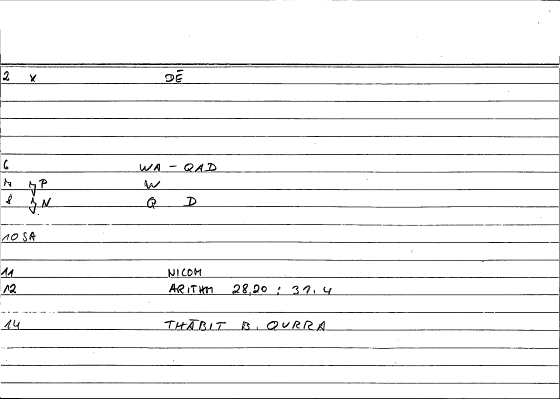 2 x DĒ
6 WA - QAD
7 P W
8 N Q D
10 SA
11 NICOM
12 ARITHM 28,20 ; 37.4
14 THĀBIT B. QURRA